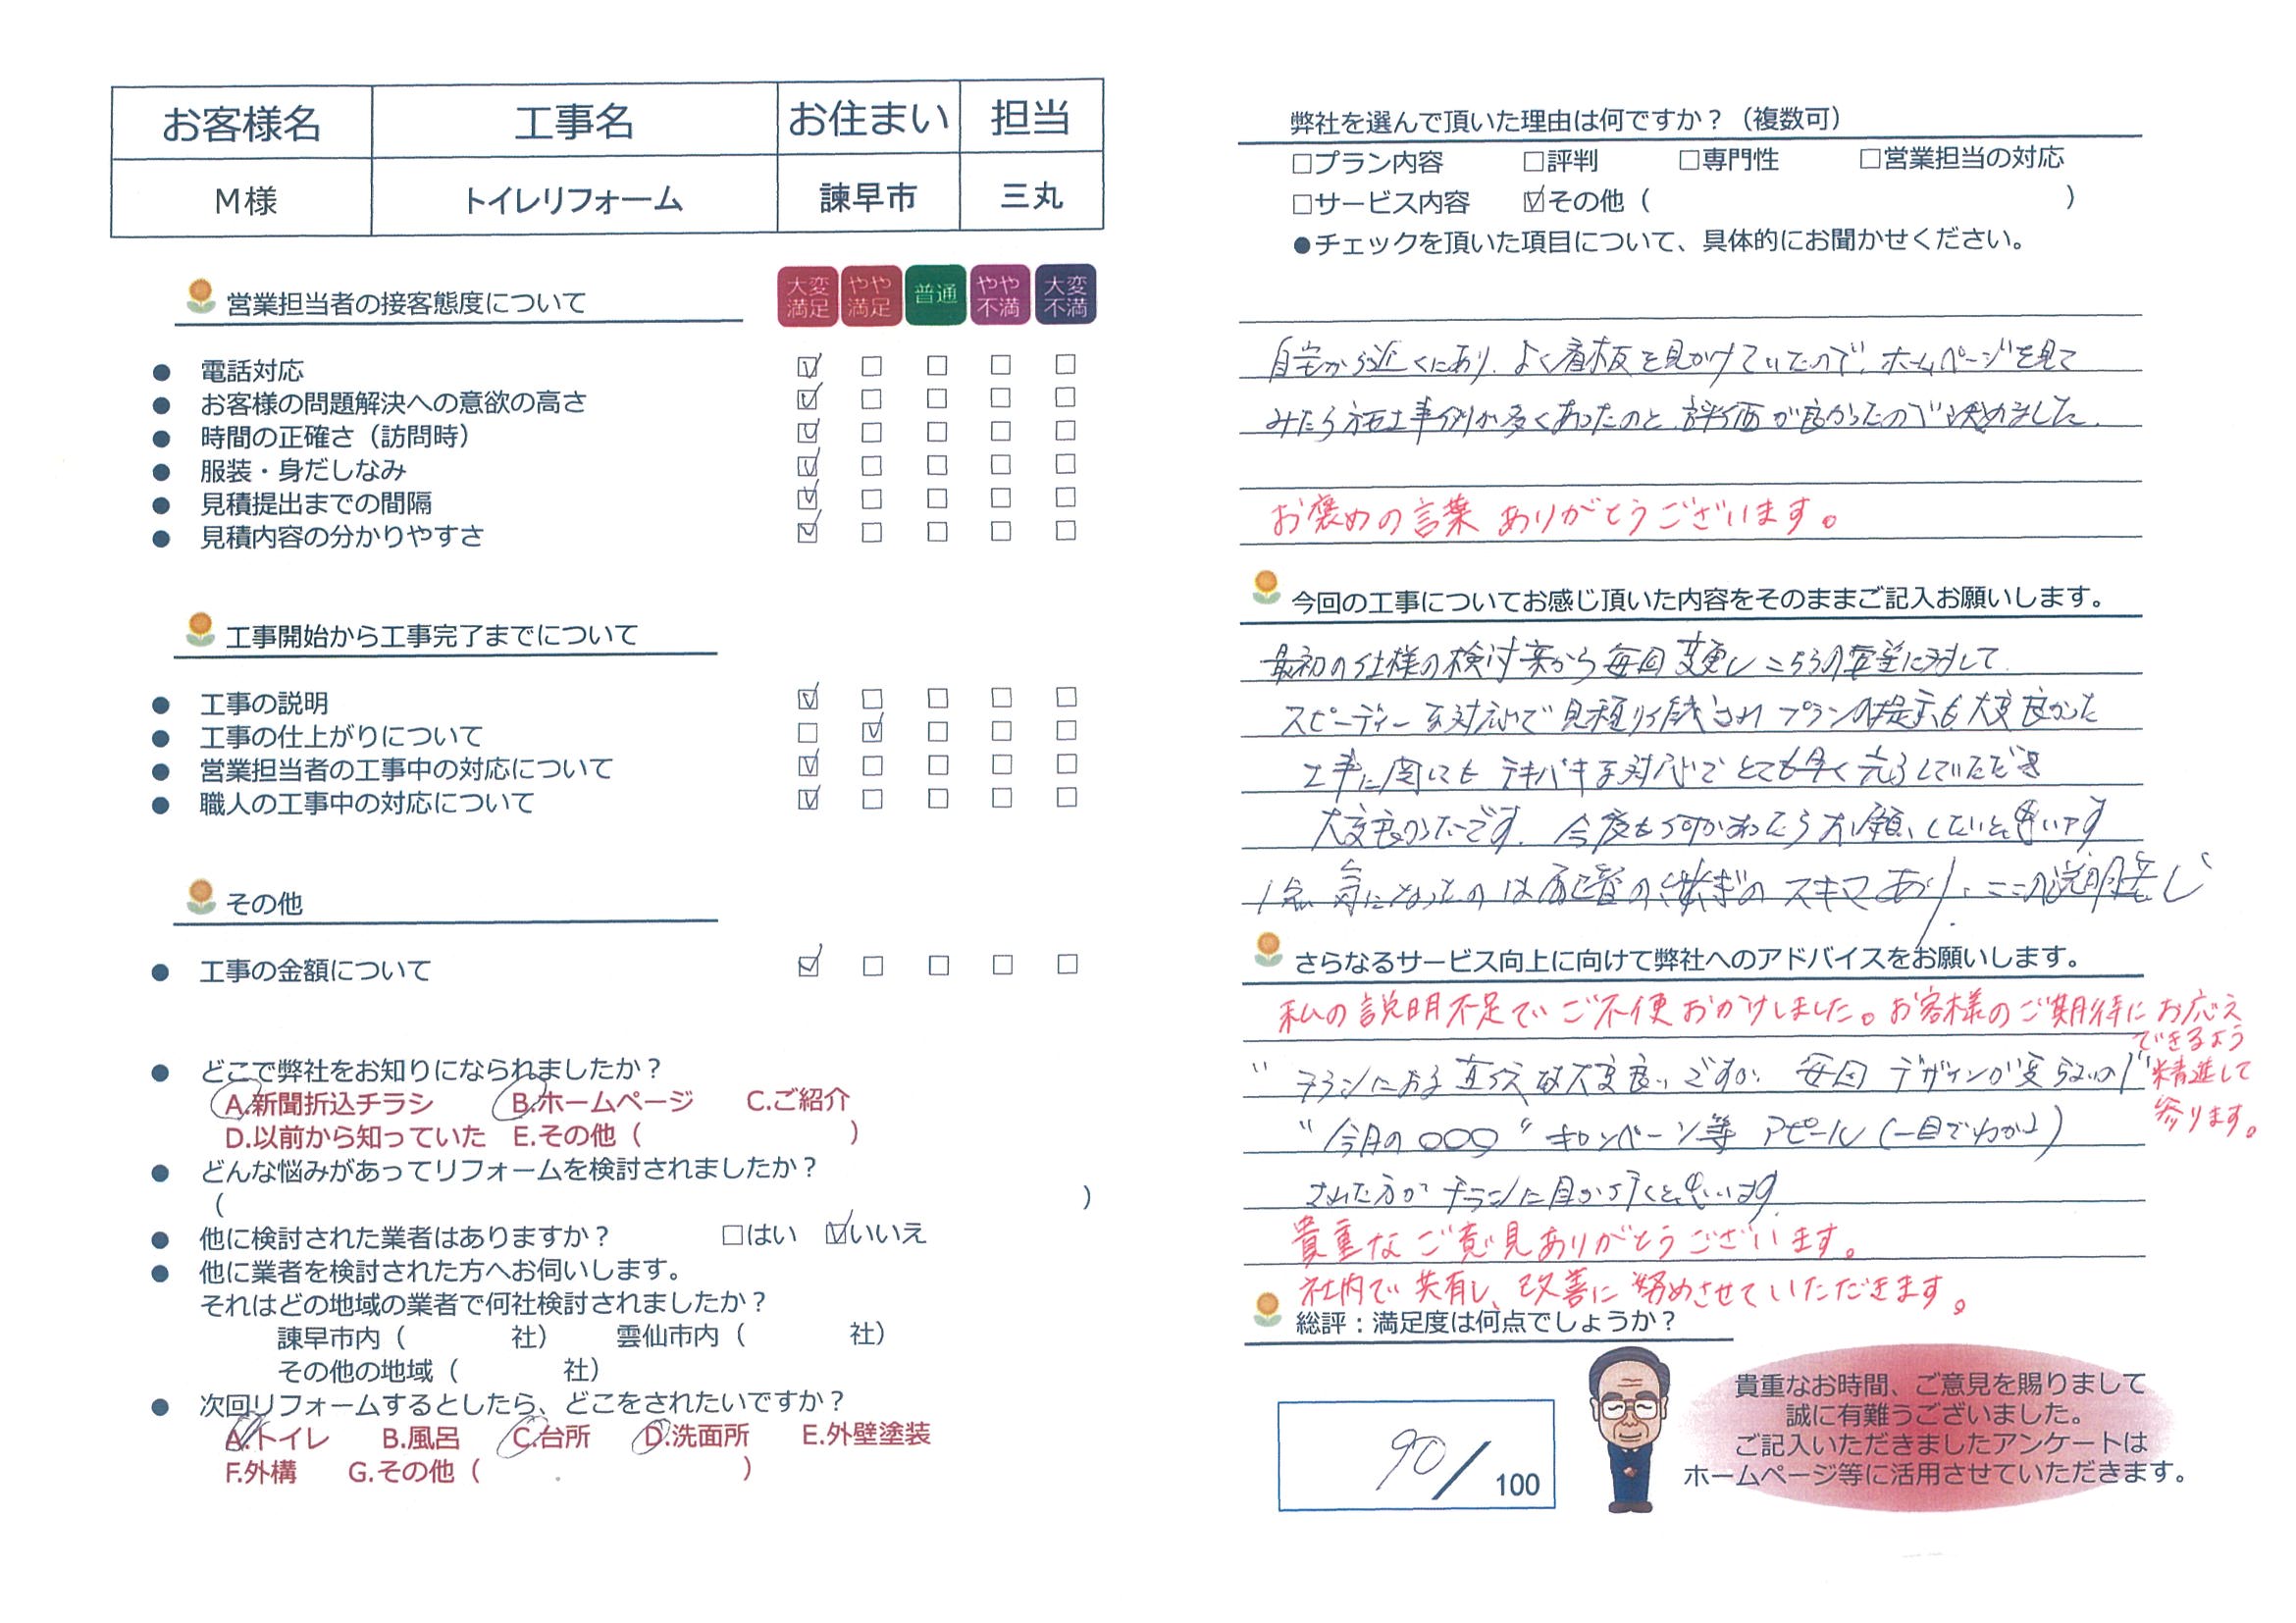 お客様名 工事名 お住まい 担当
M様 トイレリフォーム 諫早市 三丸
営業担当者の接客態度について
大変満足 やや満足 普通 やや不満 大変不満
● 電話対応 ☑ □ □ □ □
● お客様の問題解決への意欲の高さ ☑ □ □ □ □
● 時間の正確さ（訪問時） ☑ □ □ □ □
● 服装・身だしなみ ☑ □ □ □ □
● 見積提出までの間隔 ☑ □ □ □ □
● 見積内容の分かりやすさ ☑ □ □ □ □
工事開始から工事完了までについて
● 工事の説明 ☑ □ □ □ □
● 工事の仕上がりについて □ ☑ □ □ □
● 営業担当者の工事中の対応について ☑ □ □ □ □
● 職人の工事中の対応について ☑ □ □ □ □
その他
● 工事の金額について ☑ □ □ □ □
● どこで弊社をお知りになられましたか？
A.新聞折込チラシ B.ホームページ C.ご紹介
D.以前から知っていた E.その他（ ）
● どんな悩みがあってリフォームを検討されましたか？
（ ）
● 他に検討された業者はありますか？ □はい ☑いいえ
● 他に業者を検討された方へお伺いします。
それはどの地域の業者で何社検討されましたか？
諫早市内（ 社） 雲仙市内（ 社）
その他の地域（ 社）
● 次回リフォームするとしたら、どこをされたいですか？
A.トイレ B.風呂 C.台所 D.洗面所 E.外壁塗装
F.外構 G.その他（ ）
弊社を選んで頂いた理由は何ですか？（複数可）
□プラン内容 □評判 □専門性 □営業担当の対応
□サービス内容 ☑その他（ ）
●チェックを頂いた項目について、具体的にお聞かせください。
自宅から近くにあり、よく看板を見かけていたので、ホームページを見て
みたら施工事例が多くあったのと、評価が良かったので決めました。
お褒めの言葉 ありがとうございます。
今回の工事についてお感じ頂いた内容をそのままご記入お願いします。
最初の仕様の検討案から毎回変更しこちらの要望に対して
スピーディーな対応で見積り作成され プランの提示も大変良かった
工事に関してもテキパキな対応でとても早く完了していただき
大変良かったです。今度も何かあったらお願いしたいと思います
1点 気になったのは の継ぎのスキマあり、ここの説明無し
さらなるサービス向上に向けて弊社へのアドバイスをお願いします。
私の説明不足でご不便おかけしました。お客様のご期待にお応え
できるよう
精進して
参ります。
チラシにおる は大変良いですが、毎回デザインが変らないので
"今月の○○○" キャンペーン等 アピール（一目でわかる）
された方が チラシに目が行くと思います
貴重なご意見ありがとうございます。
社内で共有し、改善に努めさせていただきます。
総評：満足度は何点でしょうか？
90／100
貴重なお時間、ご意見を賜りまして
誠に有難うございました。
ご記入いただきましたアンケートは
ホームページ等に活用させていただきます。